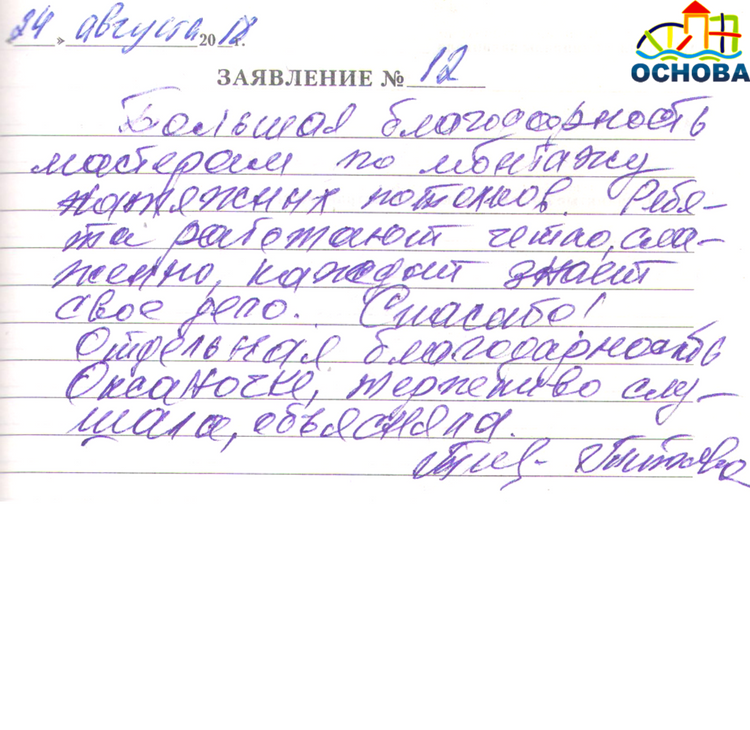 24 » августа 2012г.
ОСНОВА
ЗАЯВЛЕНИЕ № 12
Большая благодарность
мастерам по монтажу
натяжных потолков. Ребя-
та работают четко, сла-
женно, каждый знает
свое дело. Спасибо!
Отдельная благодарность
Оксаночке, терпеливо слу-
шала, объясняла.